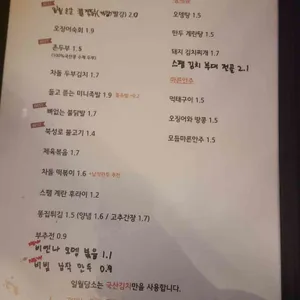 오징어숙회 1.9
손두부 1.5
차돌 두부김치 1.7
들고 뜯는 미니족발 1.9
뼈없는 불닭발 1.7
북성로 불고기 1.4
제육볶음 1.7
차돌 떡볶이 1.6
스팸 계란 후라이 1.2
똥집튀김 1.5 (양념 1.6 / 고추간장 1.7)
부추전 0.9
비엔나 오뎅 볶음 1.1
비빔 납작 만두 0.9
오뎅탕 1.5
만두 계란탕 1.5
돼지 김치찌개 1.7
스팸 김치 부대 전골 2.1
마른안주
먹태구이 1.5
오징어와 땅콩 1.5
모듬마른안주 1.5
일월담소는 국산김치만을 사용합니다.